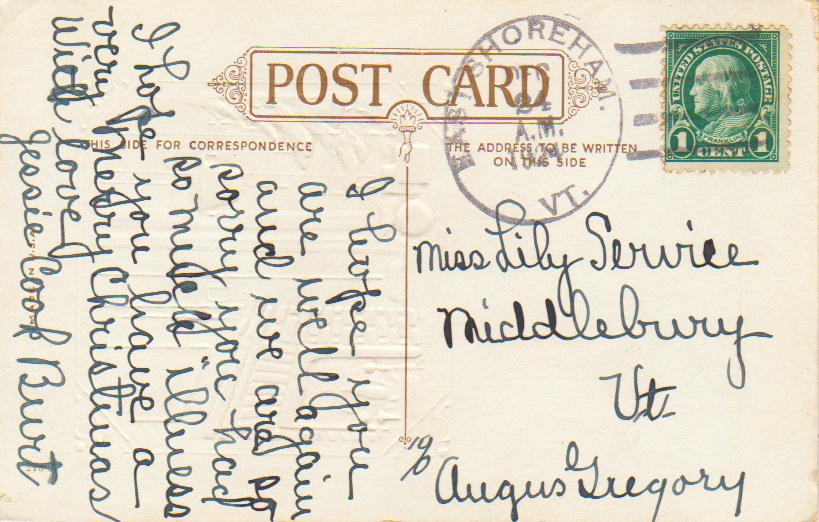 POST CARD
THIS SIDE FOR CORRESPONDENCE
THE ADDRESS TO BE WRITTEN
ON THIS SIDE
EAST SHOREHAM.
DEC
24
A.M.
VT.
UNITED STATES POSTAGE
FRANKLIN
1 CENT 1
I hope you
are well again
and we are so
sorry you had
so much illness
I hope you have a
very Merry Christmas
With love
Jessie Cook Burt
Miss Lily Service
Middlebury
Vt
℅ Augus Gregory